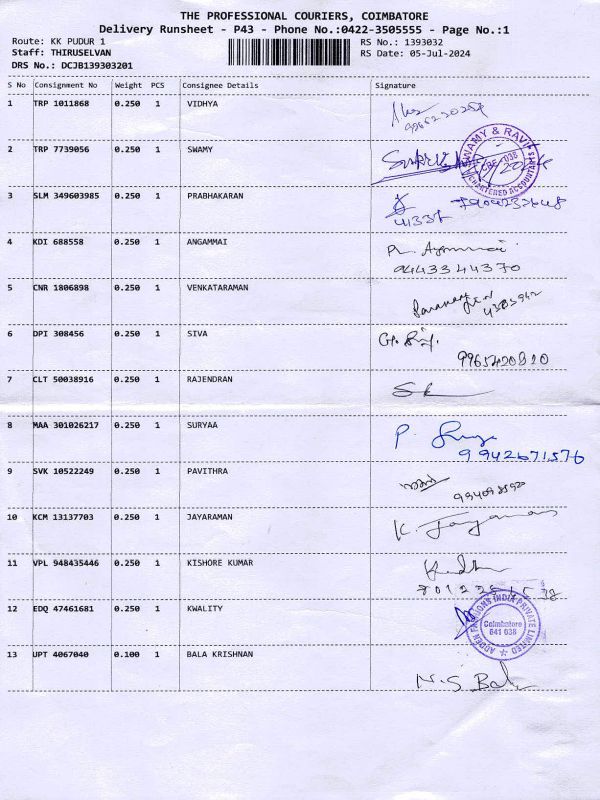 THE PROFESSIONAL COURIERS, COIMBATORE
Delivery Runsheet - P43 - Phone No.:0422-3505555 - Page No.:1
Route: KK PUDUR 1 RS No.: 1393032
Staff: THIRUSELVAN RS Date: 05-Jul-2024
DRS No.: DCJB139303201
S No Consignment No Weight PCS Consignee Details Signature
1 TRP 1011868 0.250 1 VIDHYA
2 TRP 7739056 0.250 1 SWAMY
SWAMY & RAVI
CBE - 038
CHARTERED ACCOUNTANTS
3 SLM 349603985 0.250 1 PRABHAKARAN
4 KDI 688558 0.250 1 ANGAMMAI
9443344370
5 CNR 1806898 0.250 1 VENKATARAMAN
6 DPI 308456 0.250 1 SIVA
7 CLT 50038916 0.250 1 RAJENDRAN
8 MAA 301026217 0.250 1 SURYAA
9942671576
9 SVK 10522249 0.250 1 PAVITHRA
10 KCM 13137703 0.250 1 JAYARAMAN
K. Jayaraman
11 VPL 948435446 0.250 1 KISHORE KUMAR
12 EDQ 47461681 0.250 1 KWALITY
FASHIONS INDIA PRIVATE LIMITED
Coimbatore
641 038
13 UPT 4067040 0.100 1 BALA KRISHNAN
N.S Bal